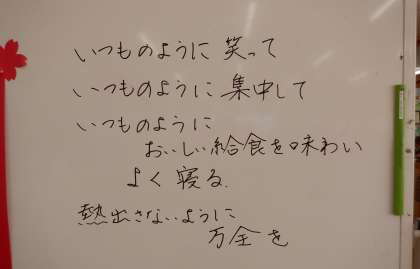 いつものように 笑って
いつものように 集中して
いつものように
おいしい給食を味わい
よく 寝る.
熱出さないように
万全を